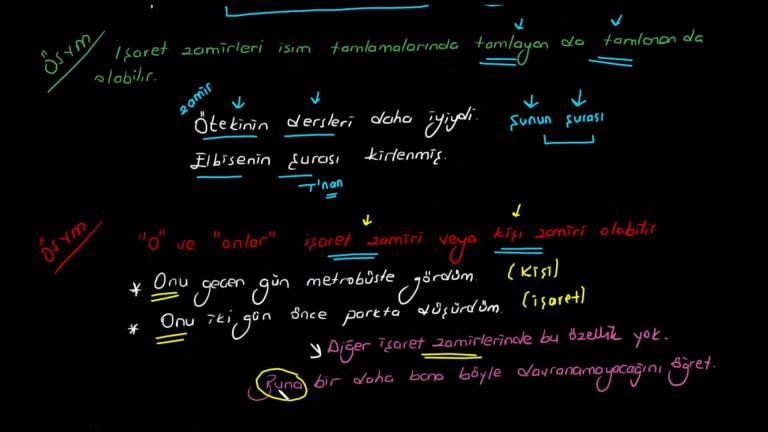 ÖSYM
İşaret zamirleri isim tamlamalarında tamlayan da tamlanan da
olabilir.
zamir
Ötekinin dersleri daha iyiydi.
Şunun şurası
Elbisenin şurası kirlenmiş.
T'nan
ÖSYM
"O" ve "onlar" işaret zamiri veya kişi zamiri olabilir
* Onu geçen gün metrobüste gördüm. (Kişi)
* Onu iki gün önce parkta düşürdüm. (işaret)
Diğer işaret zamirlerinde bu özellik yok.
Şuna bir daha bana böyle davranamayacağını öğret.